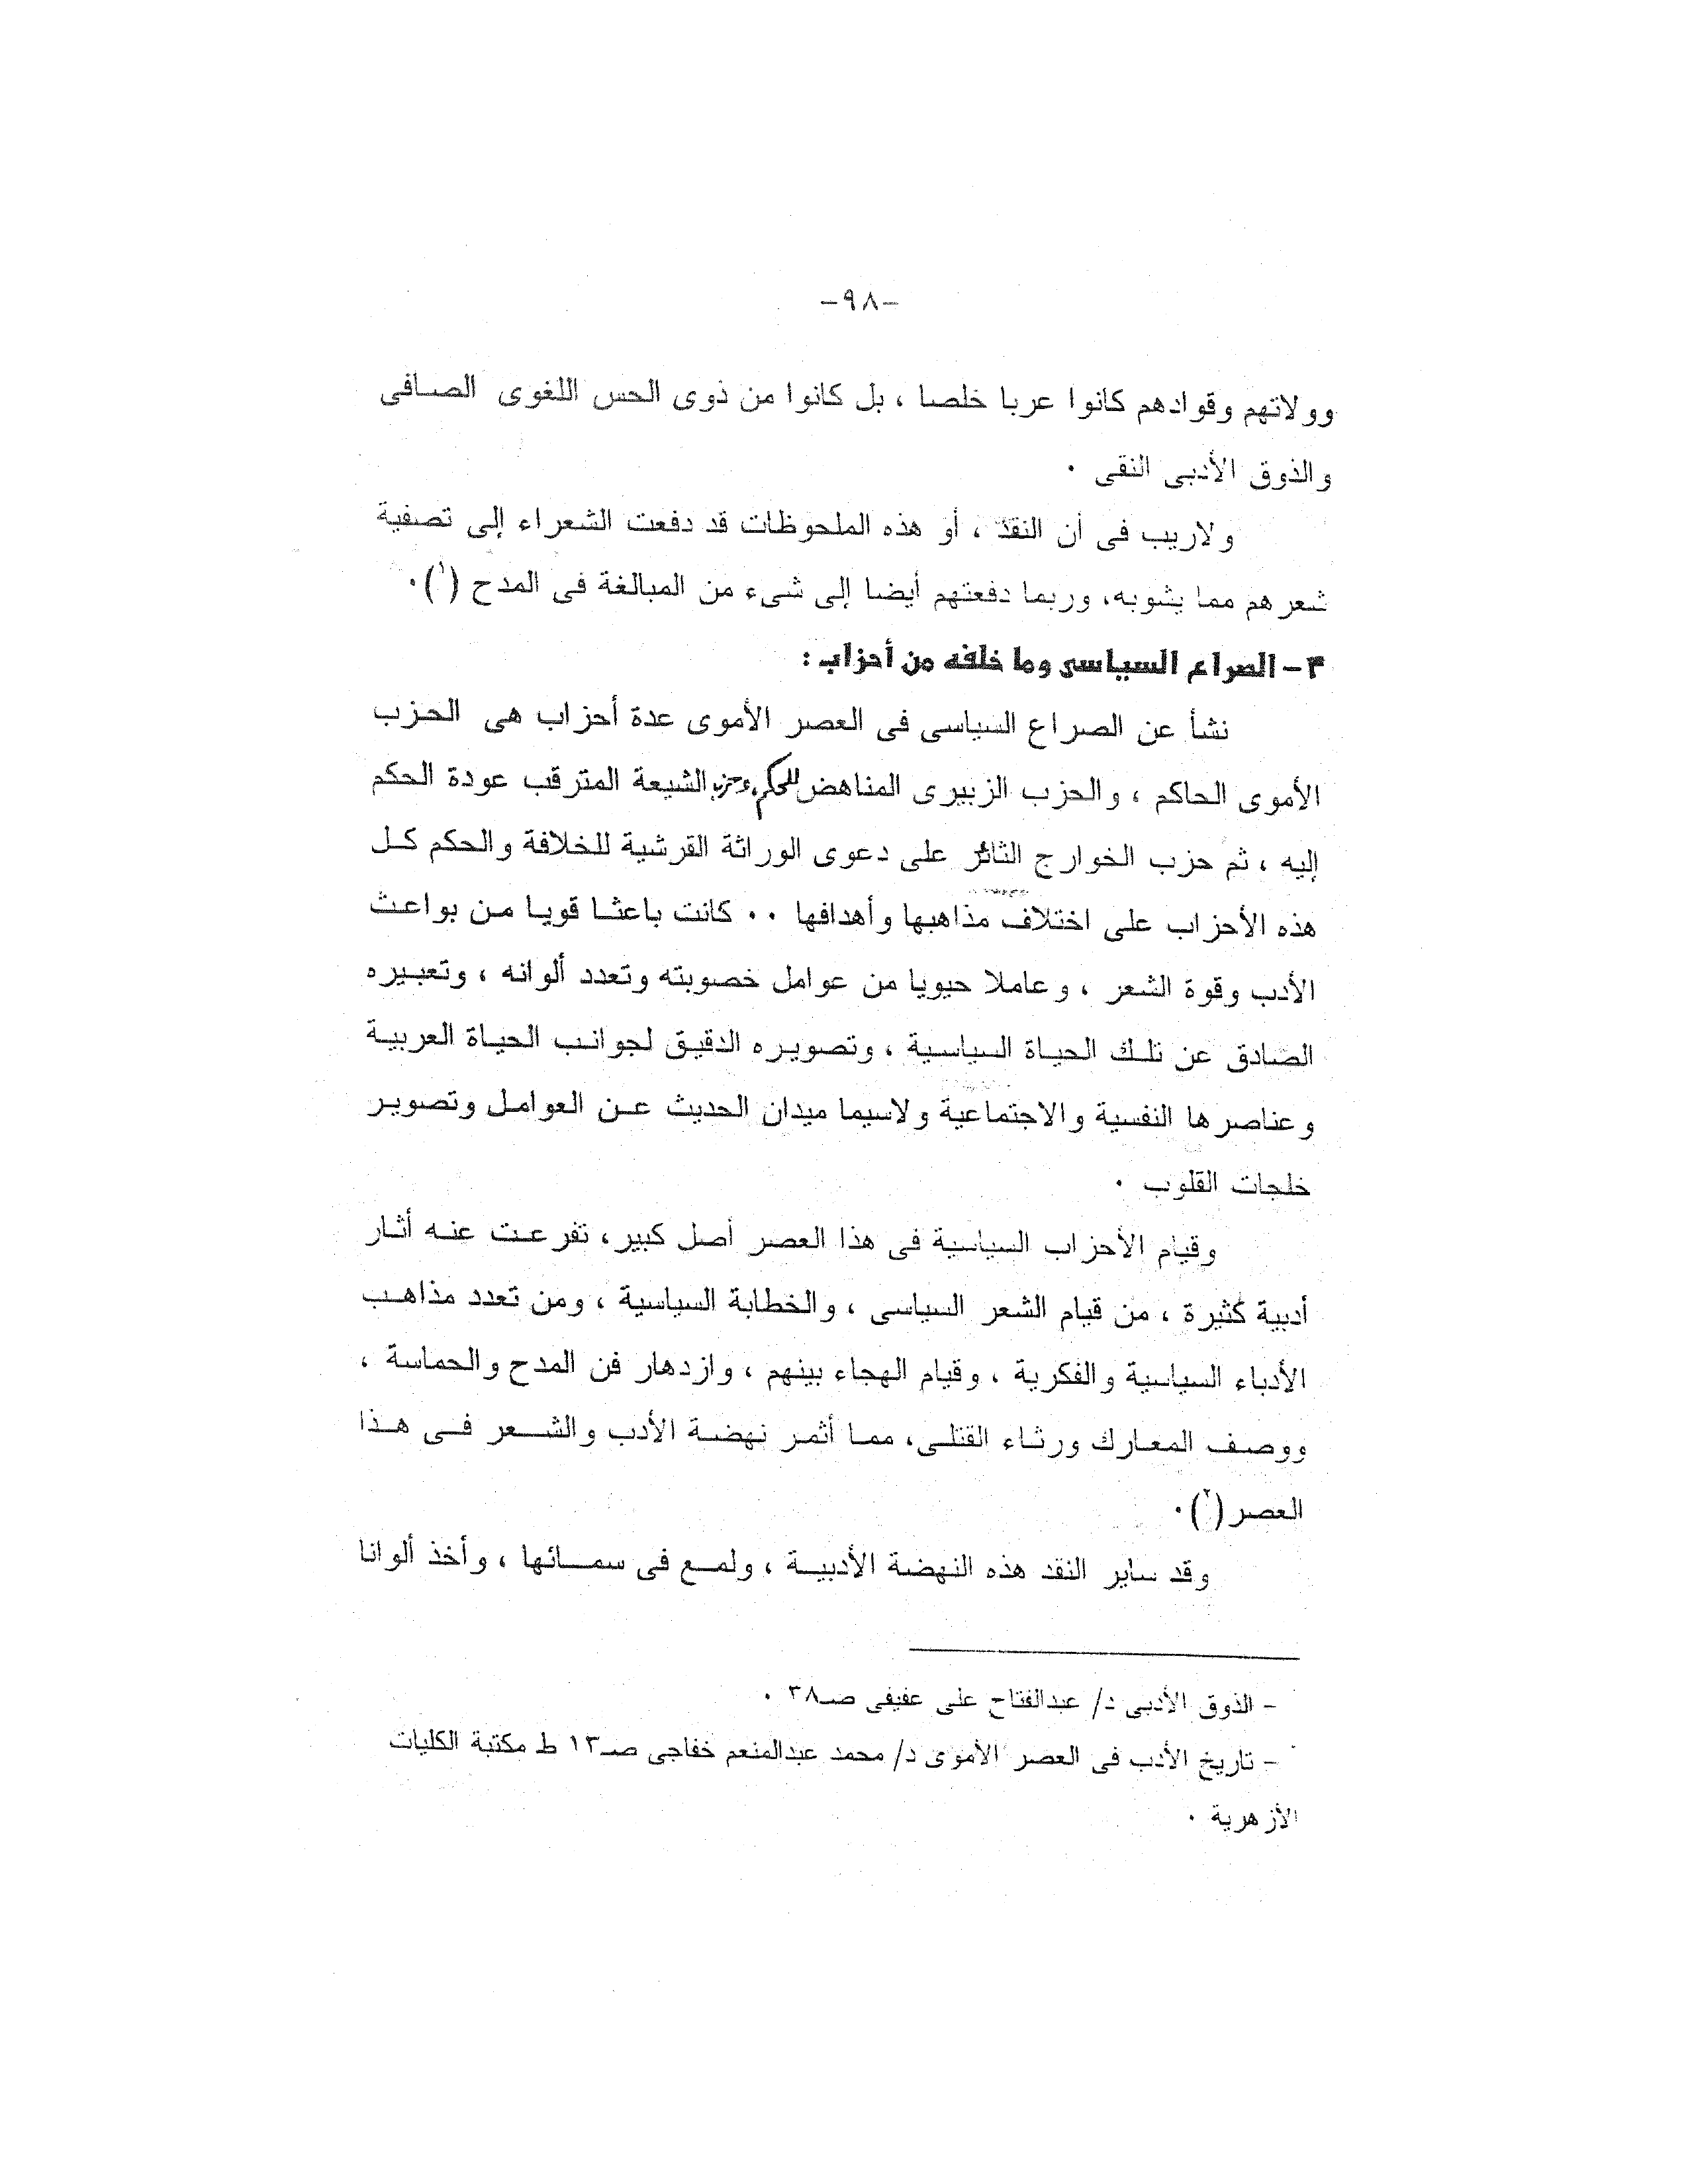 -٩٨-
وولاتهم وقوادهم كانوا عربا خلصا ، بل كانوا من ذوى الحس اللغوى الصافى
والذوق الأدبى النقى ٠
ولاريب فى أن النقد ، أو هذه الملحوظات قد دفعت الشعراء إلى تصفية
شعرهم مما يشوبه، وربما دفعتهم أيضا إلى شىء من المبالغة فى المدح (١)٠
٣- الصراع السياسى وما خلفه من أحزاب :
نشأ عن الصراع السياسى فى العصر الأموى عدة أحزاب هى الحزب
الأموى الحاكم ، والحزب الزبيرى المناهض للحكم، وحزب الشيعة المترقب عودة الحكم
إليه ، ثم حزب الخوارج الثائر على دعوى الوراثة القرشية للخلافة والحكم كل
هذه الأحزاب على اختلاف مذاهبها وأهدافها ٠٠ كانت باعثا قويا من بواعث
الأدب وقوة الشعر ، وعاملا حيويا من عوامل خصوبته وتعدد ألوانه ، وتعبيره
الصادق عن تلك الحياة السياسية ، وتصويره الدقيق لجوانب الحياة العربية
وعناصرها النفسية والاجتماعية ولاسيما ميدان الحديث عن العوامل وتصوير
خلجات القلوب ٠
وقيام الأحزاب السياسية فى هذا العصر أصل كبير، تفرعت عنه أثار
أدبية كثيرة ، من قيام الشعر السياسى ، والخطابة السياسية ، ومن تعدد مذاهب
الأدباء السياسية والفكرية ، وقيام الهجاء بينهم ، وازدهار فن المدح والحماسة ،
ووصف المعارك ورثاء القتلى، مما أثمر نهضة الأدب والشعر فى هذا
العصر(٢)٠
وقد ساير النقد هذه النهضة الأدبية ، ولمع فى سمائها ، وأخذ ألوانا
- الذوق الأدبى د/ عبدالفتاح على عفيفى صـ٣٨ ٠
- تاريخ الأدب فى العصر الأموى د/ محمد عبدالمنعم خفاجى صـ١٣ ط مكتبة الكليات
الأزهرية ٠